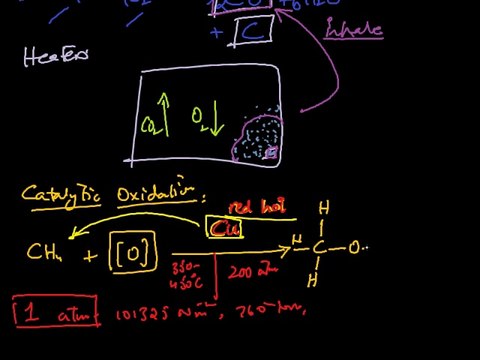 12CO + 6H2O
+ C
Inhale
Heaters
CO2 O2
Catalytic Oxidation:
red hot
Cu
CH4 + [O]
H
H-C-O..
H
350-
450°C
200 atm
1 atm 101325 Nm-2, 760